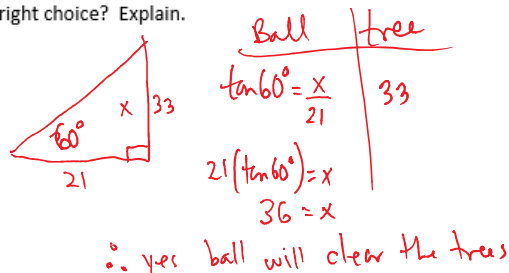 right choice? Explain.
Ball tree
tan60° = x/21 33
x 33
60°
21
21(tan60°) = x
36 = x
∴ yes ball will clear the trees